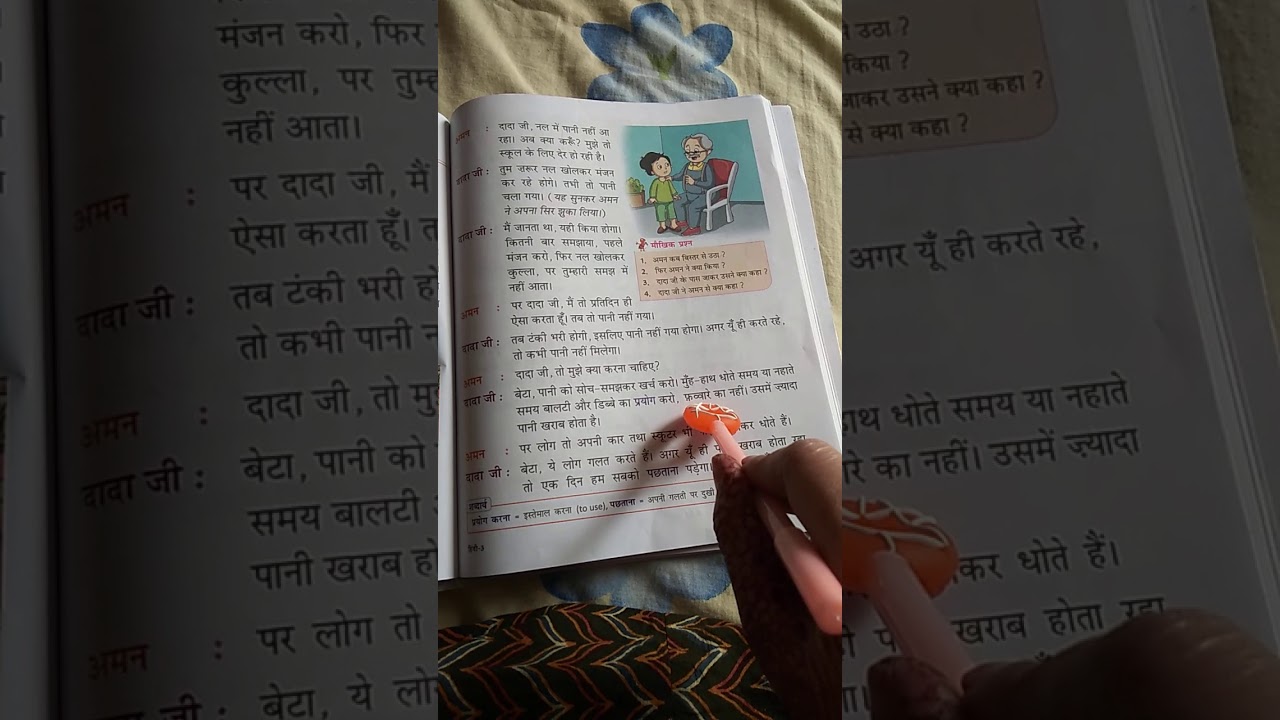 अमन : दादा जी, नल में पानी नहीं आ
रहा। अब क्या करूँ? मुझे तो
स्कूल के लिए देर हो रही है।
दादा जी : तुम ज़रूर नल खोलकर मंजन
कर रहे होगे। तभी तो पानी
चला गया। ( यह सुनकर अमन
ने अपना सिर झुका लिया।)
दादा जी : मैं जानता था, यही किया होगा।
कितनी बार समझाया, पहले
मंजन करो, फिर नल खोलकर
कुल्ला, पर तुम्हारी समझ में
नहीं आता।
मौखिक प्रश्न
1. अमन कब बिस्तर से उठा ?
2. फिर अमन ने क्या किया ?
3. दादा जी के पास जाकर उसने क्या कहा ?
4. दादा जी ने अमन से क्या कहा ?
अमन : पर दादा जी, मैं तो प्रतिदिन ही
ऐसा करता हूँ। तब तो पानी नहीं गया।
दादा जी : तब टंकी भरी होगी, इसलिए पानी नहीं गया होगा। अगर यूँ ही करते रहे,
तो कभी पानी नहीं मिलेगा।
अमन : दादा जी, तो मुझे क्या करना चाहिए?
दादा जी : बेटा, पानी को सोच-समझकर खर्च करो। मुँह-हाथ धोते समय या नहाते
समय बालटी और डिब्बे का प्रयोग करो, फ़व्वारे का नहीं। उसमें ज़्यादा
पानी खराब होता है।
अमन : पर लोग तो अपनी कार तथा स्कूटर भी कर धोते हैं।
दादा जी : बेटा, ये लोग गलत करते हैं। अगर यूँ ही खराब होता रहा
तो एक दिन हम सबको पछताना पड़ेगा।
शब्दार्थ
प्रयोग करना = इस्तेमाल करना (to use), पछताना = अपनी गलती पर दुखी
हिंदी-3